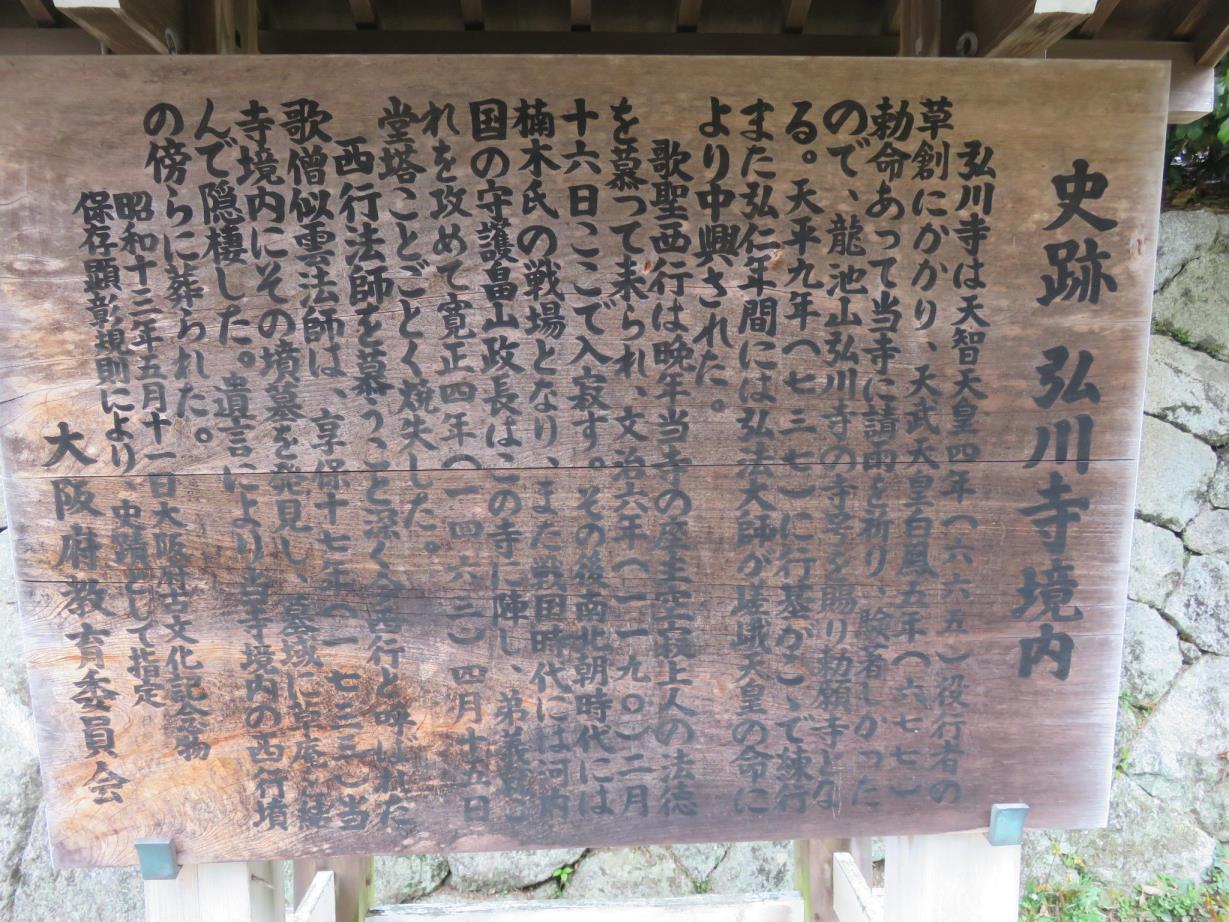 史跡 弘川寺境内
弘川寺は天智天皇四年(六六五)役行者の
草創にかかり、天武天皇白鳳五年(六七七)
勅命あって当寺に請雨を祈り、験著しかった
ので、龍池山弘川寺の寺号を賜り勅願寺とな
る。天平九年(七三七)に行基がこゝで練行
また弘仁年間には弘法大師が嵯峨天皇の命に
より中興された。
歌聖西行は晩年当寺の座主空寂上人の法徳
を慕って来られ、文治六年(一一九〇)二月
十六日ここで入寂す。その後南北朝時代には
楠木氏の戦場となり、また戦国時代には河内
国の守護畠山政長はこの寺に陣し、弟義就こ
れを攻めて寛正四年(一四六三)四月十五日
堂塔ことごとく焼失した。
西行法師を慕うこと深く今西行と呼ばれた
歌僧似雲法師は、享保十七年(一七三二)当
寺境内にその墳墓を発見し、墓域に草庵を結
んで隠棲した。遺言により当寺境内の西行墳
の傍らに葬られた。
昭和十三年五月十一日大阪府古文化記念物
保存顕彰規則により、史蹟として指定
大阪府教育委員会